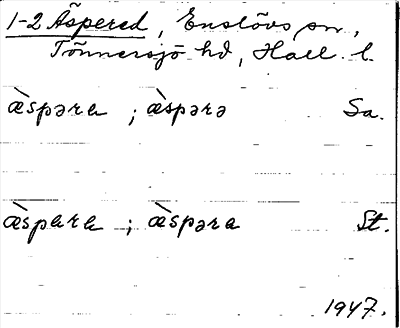 1-2 Äspered, Enslövs sn,
Tönnersjö hd, Hall. l.
æ̀spəra ; æ̀spərə Sa.
æ̀spara ; æ̀spəra St.
1947.